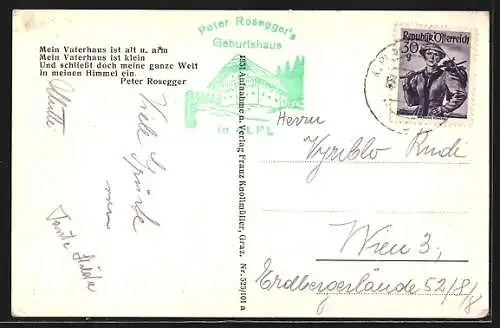 Mein Vaterhaus ist alt u. arm
Mein Vaterhaus ist klein
Und schließt doch meine ganze Welt
in meinen Himmel ein.
Peter Rosegger
Peter Rosegger's
Geburtshaus
in ALPL
1831 Aufnahme u. Verlag Franz Knollmüller, Graz. Nr. 525/101 a
Republik Österreich
30
g
Viele Grüße
von
Tante
Herrn
Rudi
Wien 3,
Erdbergerlände 52/8/8